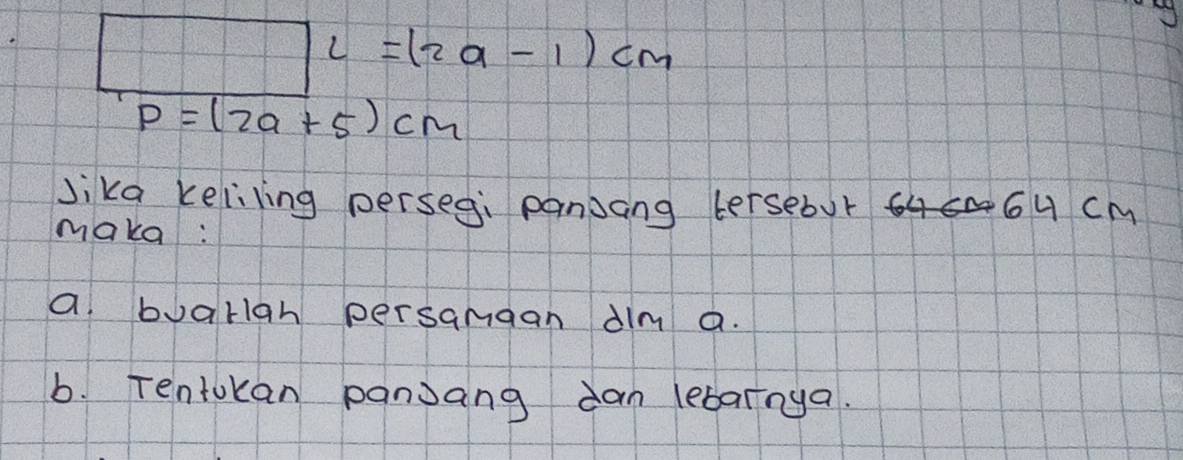 L = (2a - 1) cm
P = (2a + 5) cm
Jika keliling persegi panjang tersebut 64 cm 64 cm
maka :
a. buatlah persamaan dlm a.
b. Tentukan panjang dan lebarnya.